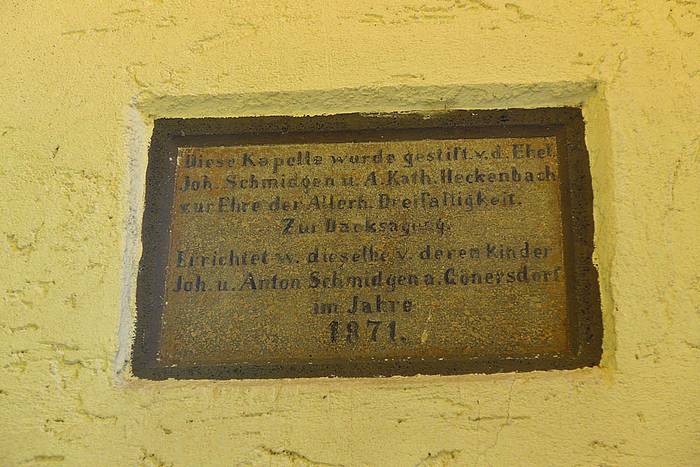 Diese Kapelle wurde gestift. v. d. Ehel.
Joh. Schmidgen u. A. Kath. Heckenbach
zur Ehre der Allerh. Dreifaltigkeit.
Zur Dacksagung.
Errichtet w. dieselbe v. deren Kinder
Joh. u. Anton Schmidgen a. Gönersdorf
im Jahre
1871.